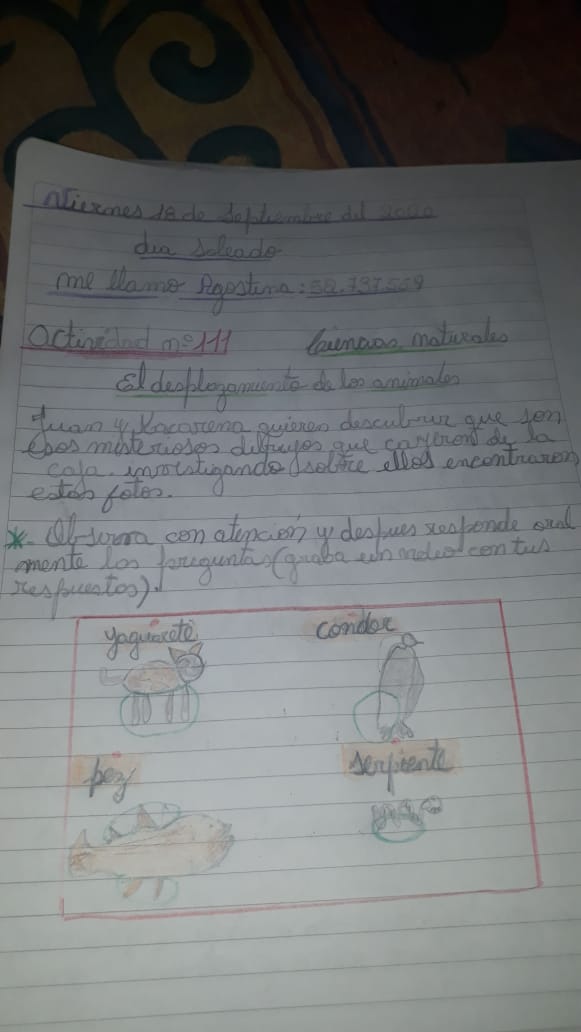 Viernes 18 de Septiembre del 2020
dia soleado
me llamo Agostina: 58.737.569
Actividad n° 111 Ciencias naturales
El desplazamiento de los animales
Juan y Macarena quieren descubrir que son
esos misteriosos dibujos que cayeron de la
caja. investigando sobre ellos encontraron
estas fotos.
*. Observa con atención y despues responde oral
mente las preguntas (graba un video con tus
respuestas).
yaguareté condor
pez serpiente